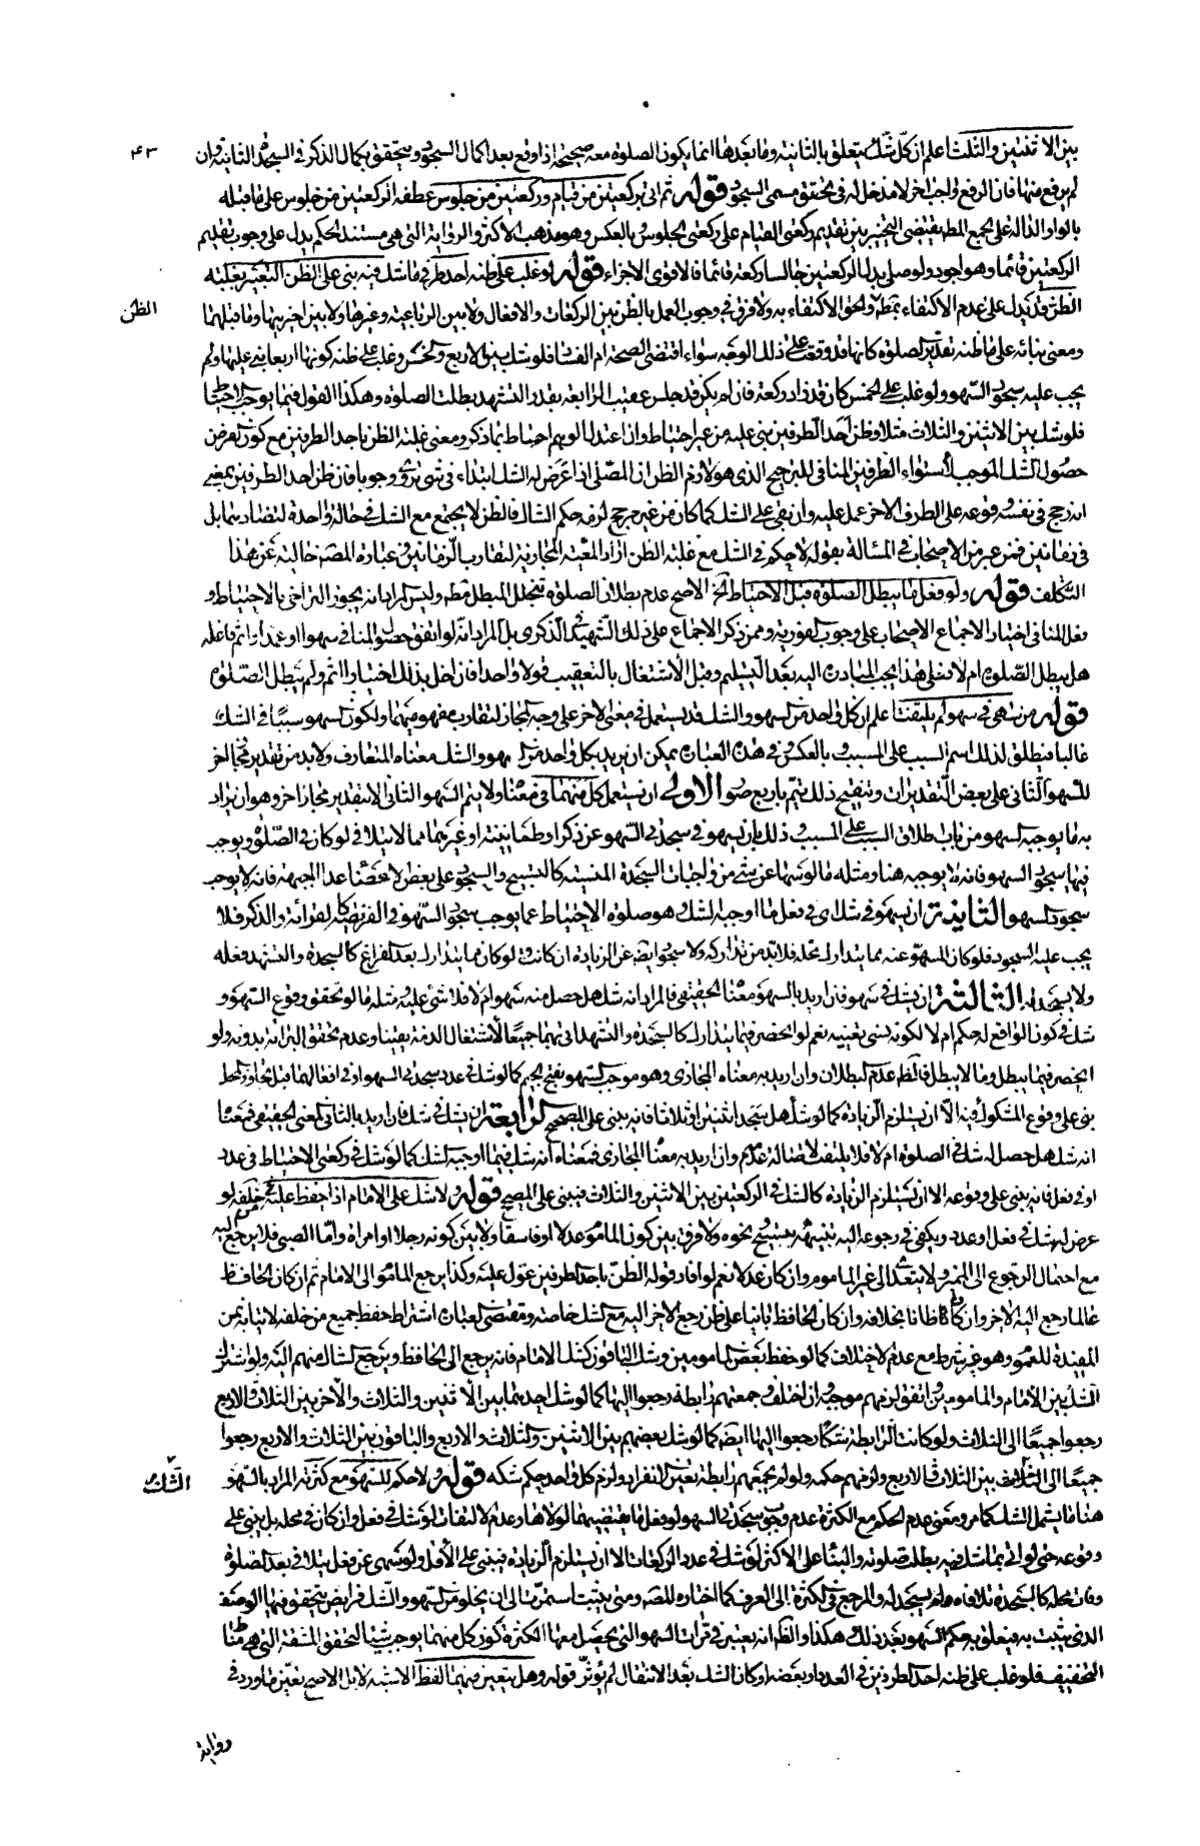 بين الاثنتين والثلث اعلم ان كل شك يتعلق بالثانية وما بعدها انما يكون الصلوة معه صحيحة اذا وقع بعد اكمال السجود ويتحقق بكمال الذكر في السجدة الثانية وان
۴۳
لم يرفع منها فان الرفع واجب اخر لا مدخل له في تحقق مسمى السجود قوله ثم اتى بركعتين من قيام وركعتين من جلوس عطفه الركعتين من جلوس على ما قبله
بالواو الدالة على الجمع المطـ يقتضي التخيير بين تقديم ركعتي القيام على ركعتي الجلوس وبالعكس وهو مذهب الاكثر والرواية التي هي مستند الحكم يدل على وجوب تقديم
الركعتين قائما وهو اجود ولو صلى بدل الركعتين جالسا ركعة قائما فالاقوى الاجزاء قوله لو غلب على ظنه احد طرفي ما شك فيه بنى على الظن التعبير بغلبة
الظن قد يدل على عدم الاكتفاء بمطلقه والحق الاكتفاء به ولا فرق في وجوب العمل بالظن بين الركعات والافعال ولا بين الرباعية وغيرها ولا بين اخيرتيها وما قبلهما
الظن
ومعنى بنائه على ما ظنه تقدير الصلوة كانها قد وقعت على ذلك الوجه سواء اقتضى الصحة ام الفساد فلو شك بين الاربع والخمس وغلب على ظنه كونها اربعا بنى عليها ولم
يجب عليه سجود السهو ولو غلب على الخمس كان قد زاد ركعة فان لم يكن قد جلس عقيب الرابعة بقدر التشهد بطلت الصلوة وهكذا القول فيما يوجب الاحتياط
فلو شك بين الاثنين والثلاث مثلا وظن احد الطرفين بنى عليه من غير احتياط واذا اعتدل الوهم احتاط بما ذكر ومعنى غلبة الظن باحد الطرفين مع كون الفرض
حصول الشك الموجب لاستواء الطرفين المنافي للترجيح الذي هو لازم الظن ان المصلي اذا عرض له الشك ابتداء في شيء تروى وجوبا فان ظن احد الطرفين بمعنى
انه رجح في نفسه وقوعه على الطرف الاخر عمل عليه وان بقي على الشك كما كان من غير مرجح لزمه حكم الشاك فالظن لا يجتمع مع الشك في حالة واحدة لتضادهما بل
في زمانين فمن عبر من الاصحاب في المسالة بقوله لا حكم في الشك مع غلبة الظن اراد المعية المجازية لتقارب الزمانين وعبارة المصـ خالية عن هذا
التكلف قوله ولو فعل ما يبطل الصلوة قبل الاحتياط الخ الاصح عدم بطلان الصلوة بتخلل المبطل مطـ وليس المراد انه يجوز التراخي بالاحتياط و
فعل المنافي اختيارا لاجماع الاصحاب على وجوب الفورية وممن ذكر الاجماع على ذلك الشهيد في الذكرى بل المراد انه لو اتفق حصول المنافي سهوا او عمدا واثم فاعله
هل يبطل الصلوة ام لا فعلى هذا يجب المبادرة اليه بعد التسليم وقبل الاشتغال بالتعقيب قولا واحدا فان اخل بذلك اختيارا اثم ولم يبطل الصلوة
قوله من سهى في سهو لم يلتفت اعلم ان كل واحد من السهو والشك قد يستعمل في معنى الاخر على وجه المجاز لتقارب مفهوميهما ولكون السهو سببا في الشك
غالبا فيطلق لذلك اسم السبب على المسبب وبالعكس وفي هذه العبارة يمكن ان يريد بكل واحد من السهو والشك معناه المتعارف ولا بد من تقدير مجاز اخر
للسهو الثاني على بعض التقديرات وتنقيح ذلك يتم باربع صور الاولى ان يستعمل كل منهما في معناه ولا يتم السهو الثاني الا بتقدير مجاز اخر وهو ان يراد
به ما يوجبه السهو من باب اطلاق السبب على المسبب وذلك بان يسهو في سجدتي السهو عن ذكر او طمانينة او غيرهما مما لا يتلافى لو كان في الصلوة ويوجب
فيها سجود السهو فانه لا يوجبه هنا ومثله ما لو سها عن شيء من واجبات السجدة المنسية كالتسبيح والسجود على بعض الاعضاء عدا الجبهة فانه لا يوجب
سجود السهو الثانية ان يسهو في شك اي في فعل ما اوجبه الشك وهو صلوة الاحتياط عما يوجب سجود السهو في الفريضة كالقرائة والذكر فلا
يجب عليه السجود فلو كان السهو عنه مما يتدارك محله فلا بد من تداركه ولا سجود ايضـ عن الزيادة ان كانت ولو كان مما يتدارك بعد الفراغ كالسجدة والتشهد فعله
ولا يسجد له الثالثة ان يشك في سهو فان اريد بالسهو معناه الحقيقي فالمراد انه شك هل حصل منه سهو ام لا فلا شيء عليه ومثله ما لو تحقق وقوع السهو و
شك في كون الواقع له حكم ام لا لكونه نسي تعيينه نعم لو انحصر فيما يتدارك كالسجدة والتشهد اتى بهما جميعا لاشتغال الذمة يقينا وعدم تحقق البرائة بدونه ولو
انحصر فيما يبطل وما لا يبطل فالظـ عدم البطلان وان اريد به معناه المجازي وهو موجب السهو بفتح الجيم كما لو شك في عدد سجدتي السهو او في افعالهما قبل تجاوز المحل
بنى على وقوع المشكوك فيه الا ان يستلزم الزيادة كما لو شك هل سجد اثنتين او ثلاثا فانه يبنى على المصحح الرابعة ان يشك في شك فان اريد بالثاني المعنى الحقيقي فمعناه
انه شك هل حصل له شك في الصلوة ام لا فلا يلتفت لاصالة عدمه وان اريد به معناه المجازي فمعناه انه شك فيما اوجبه الشك كما لو شك في ركعتي الاحتياط في عدد
او في فعل فانه يبنى على وقوعه الا ان يستلزم الزيادة كالشك في الركعتين بين الاثنتين والثلاث فيبنى على المصحح قوله ولا شك على الامام اذا حفظ عليه من خلفه لو
عرض له شك في فعل او عدد ويكفي في رجوعه اليه تنبيهه بتسبيح ونحوه ولا فرق بين كون الماموم عدلا او فاسقا ولا بين كونه رجلا او امراة واما الصبي فلا يرجع اليه
مع احتمال الرجوع الى المميز ولا يتعدى الى غير الماموم وان كان عدلا نعم لو افاد قوله الظن باحد الطرفين عول عليه وكذا يرجع الماموم الى الامام ثم ان كان الحافظ
عالما رجع اليه الاخر وان كان ظانا بخلافه وان كان الحافظ بانيا على ظن رجع الاخر اليه مع الشك خاصة ومقتضى العبارة اشتراط حفظ جميع من خلفه لاتيانه بمن
المفيدة للعموم وهو غير شرط مع عدم الاختلاف كما لو حفظ بعض المامومين وشك الباقون كشك الامام فانه يرجع الى الحافظ ويرجع الشاك منهم اليه ولو اشترك
الشك بين الامام والمامومين واتفق لزمهم موجبه وان اختلف وجمعتهم رابطة رجعوا اليها كما لو شك احدهما بين الاثنين والثلاث والاخر بين الثلاث والاربع
رجعوا جميعا الى الثلاث ولو كانت الرابطة شكا رجعوا اليها ايضـ كما لو شك بعضهم بين الاثنين والثلاث والاربع والباقون بين الثلاث والاربع رجعوا
جميعا الى الشك بين الثلاث والاربع ولزمهم حكمه ولو لم يجمعهم رابطة تعين الانفراد ولزم كل واحد حكم شكه قوله ولا حكم للسهو مع كثرته المراد بالسهو
الشك
هنا ما يشمل الشك كما مر ومعنى عدم الحكم مع الكثرة عدم وجوب سجدتي السهو لو فعل ما يقتضيهما لولاها وعدم الالتفات لو شك في فعل وان كان في محله بل يبنى على
وقوعه حتى لو اتى بما شك فيه بطلت صلوته والبناء على الاكثر لو شك في عدد الركعات الا ان يستلزم الزيادة فيبنى على الاقل ولو سهى عن فعل يتلافى بعد الصلوة
وفات محله كالسجدة تلافاه ولم يسجد له والمرجع في الكثرة الى العرف كما اختاره المصـ ومتى يثبت استمرت الى ان يخلو من السهو والشك فرايض يتحقق فيها الوصف
الذي يثبت به فيتعلق به حكم السهو بعد ذلك وهكذا والظـ انه يعتبر في مرات السهو التي يحصل معها الكثرة كون كل منهما يوجب شيئا لتحقق المشقة التي هي مناط
التخفيف فلو غلب على ظنه احد الطرفين في العدد او بعضه او كان الشك بعد الانتقال لم يؤثر قوله وهل يتعين فيهما لفظ الاشبه لا بل الاصح تعين ما ورد في
رواية